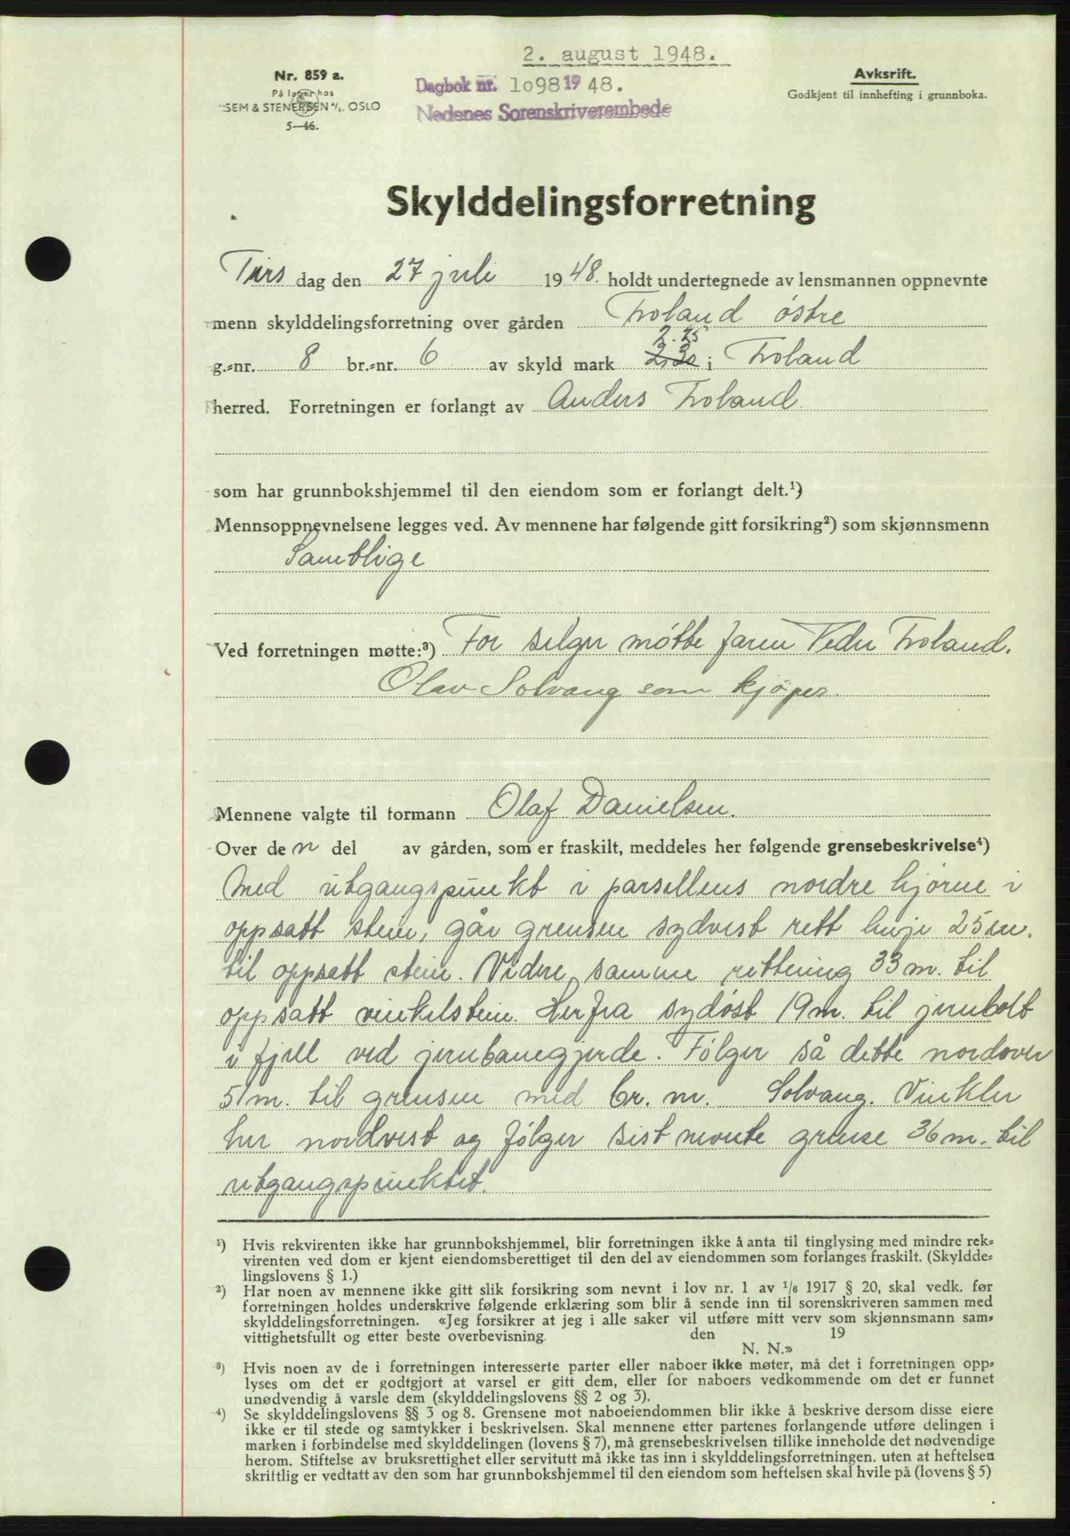 2. august 1948.
Nr. 859 a.
På lager hos
SEM & STENERSEN A/s. OSLO
5—46.
Dagbok nr. 1098 19 48.
Nedenes Sorenskriverembede
Avskrift.
Godkjent til innhefting i grunnboka.
Skylddelingsforretning
Tirs dag den 27 juli 1948. holdt undertegnede av lensmannen oppnevnte
menn skylddelingsforretning over gården Froland østre
2.25
g.-nr. 8 br.-nr. 6 av skyld mark 2,30 i Froland
herred. Forretningen er forlangt av Anders Froland.
som har grunnbokshjemmel til den eiendom som er forlangt delt.¹)
Mennsoppnevnelsene legges ved. Av mennene har følgende gitt forsikring²) som skjønnsmenn
Samtlige
Ved forretningen møtte:³) For selger møtte faren Peder Froland.
Olav Solvang som kjøper.
Mennene valgte til formann Olaf Danielsen.
Over den del av gården, som er fraskilt, meddeles her følgende grensebeskrivelse⁴)
Med utgangspunkt i parsellens nordre hjørne i
oppsatt stein, går grensen sydvest rett linje 25 m.
til oppsatt stein. Videre samme rettning 33 m. til
oppsatt vinkelstein. Herfra sydøst 19 m. til jernbolt
i fjell ved jernbanegjerde. Følger så dette nordover
51 m. til grensen med br. nr. Solvang. Vinkler
her nordvest og følger sist nevnte grense 36 m. til
utgangspunktet.
¹) Hvis rekvirenten ikke har grunnbokshjemmel, blir forretningen ikke å anta til tinglysing med mindre rek-
virenten ved dom er kjent eiendomsberettiget til den del av eiendommen som forlanges fraskilt. (Skyldde-
lingslovens § 1.)
²) Har noen av mennene ikke gitt slik forsikring som nevnt i lov nr. 1 av ¹/₆ 1917 § 20, skal vedk. før
forretningen holdes underskrive følgende erklæring som blir å sende inn til sorenskriveren sammen med
skylddelingsforretningen. «Jeg forsikrer at jeg i alle saker vil utføre mitt verv som skjønnsmann sam-
vittighetsfullt og etter beste overbevisning. den 19
N. N.»
³) Hvis noen av de i forretningen interesserte parter eller naboer ikke møter, må det i forretningen opp-
lyses om det er godtgjort at varsel er gitt dem, eller for naboers vedkommende om det er funnet
unødvendig å varsle dem (skylddelingslovens §§ 2 og 3).
⁴) Se skylddelingslovens §§ 3 og 8. Grensene mot naboeiendommen blir ikke å beskrive dersom disse eiere
ikke er til stede og samtykker i beskrivelsen. Skal mennene etter partenes forlangende utføre delingen i
marken i forbindelse med skylddelingen (lovens § 7), må grensebeskrivelsen tillike inneholde det nødvendige
herom. Stiftelse av bruksrettighet eller servitutt må ikke tas inn i skylddelingsforretningen. uten at heftelsen
skriftlig er vedtatt av den som har grunnbokshjemmel til den eiendom som heftelsen skal hvile på (lovens § 5)